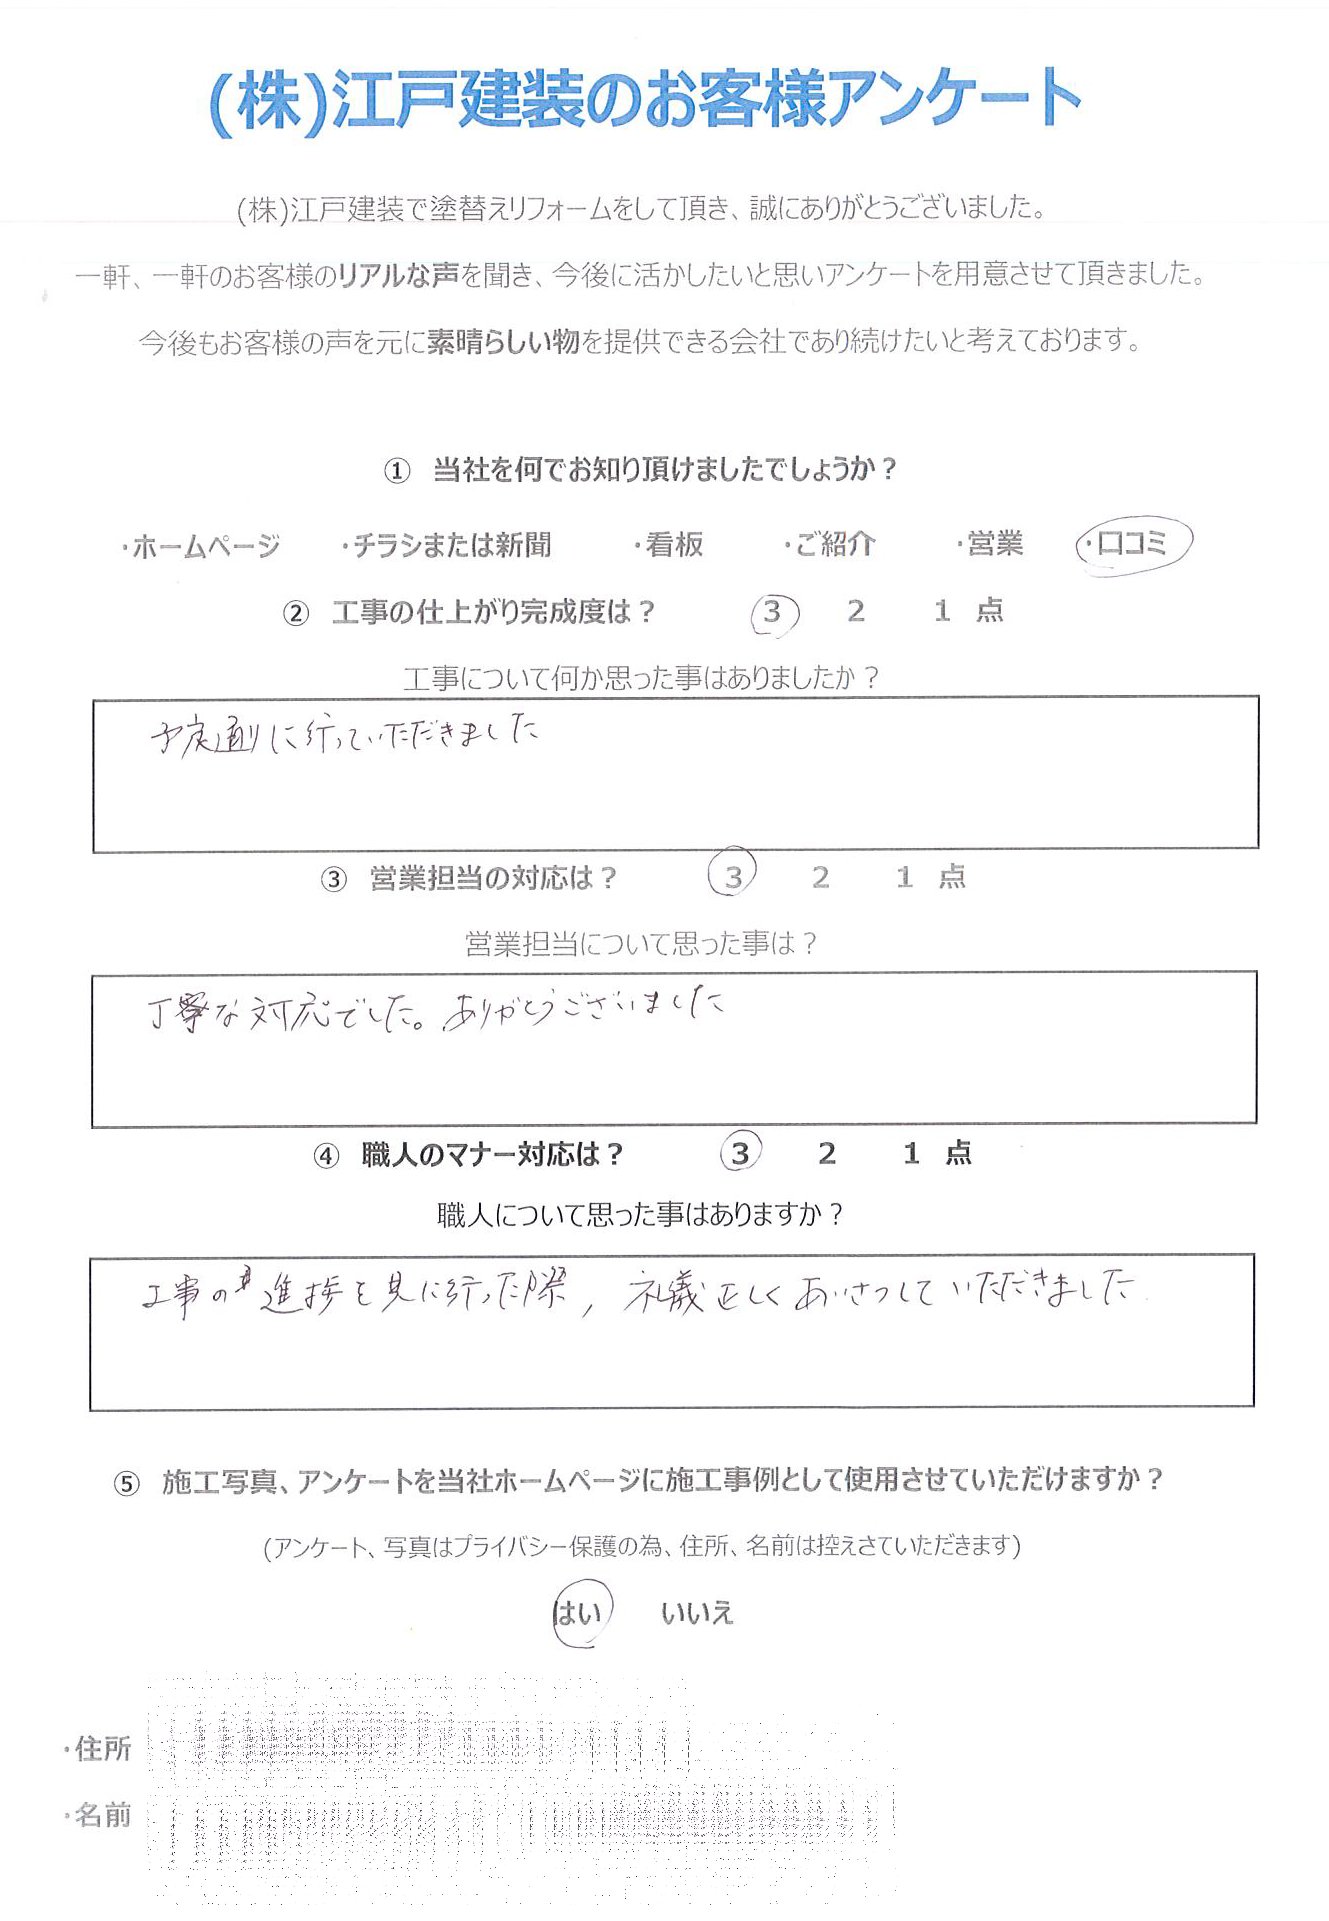 (株)江戸建装のお客様アンケート
(株)江戸建装で塗替えリフォームをして頂き、誠にありがとうございました。
一軒、一軒のお客様のリアルな声を聞き、今後に活かしたいと思いアンケートを用意させて頂きました。
今後もお客様の声を元に素晴らしい物を提供できる会社であり続けたいと考えております。
① 当社を何でお知り頂けましたでしょうか？
・ホームページ ・チラシまたは新聞 ・看板 ・ご紹介 ・営業 ・口コミ
② 工事の仕上がり完成度は？ 3 2 1 点
工事について何か思った事はありましたか？
予定通りに行っていただきました
③ 営業担当の対応は？ 3 2 1 点
営業担当について思った事は？
丁寧な対応でした。ありがとうございました
④ 職人のマナー対応は？ 3 2 1 点
職人について思った事はありますか？
工事の進捗を見に行った際, 礼儀正しくあいさつしていただきました
⑤ 施工写真、アンケートを当社ホームページに施工事例として使用させていただけますか？
(アンケート、写真はプライバシー保護の為、住所、名前は控えさていただきます)
はい いいえ
・住所
・名前